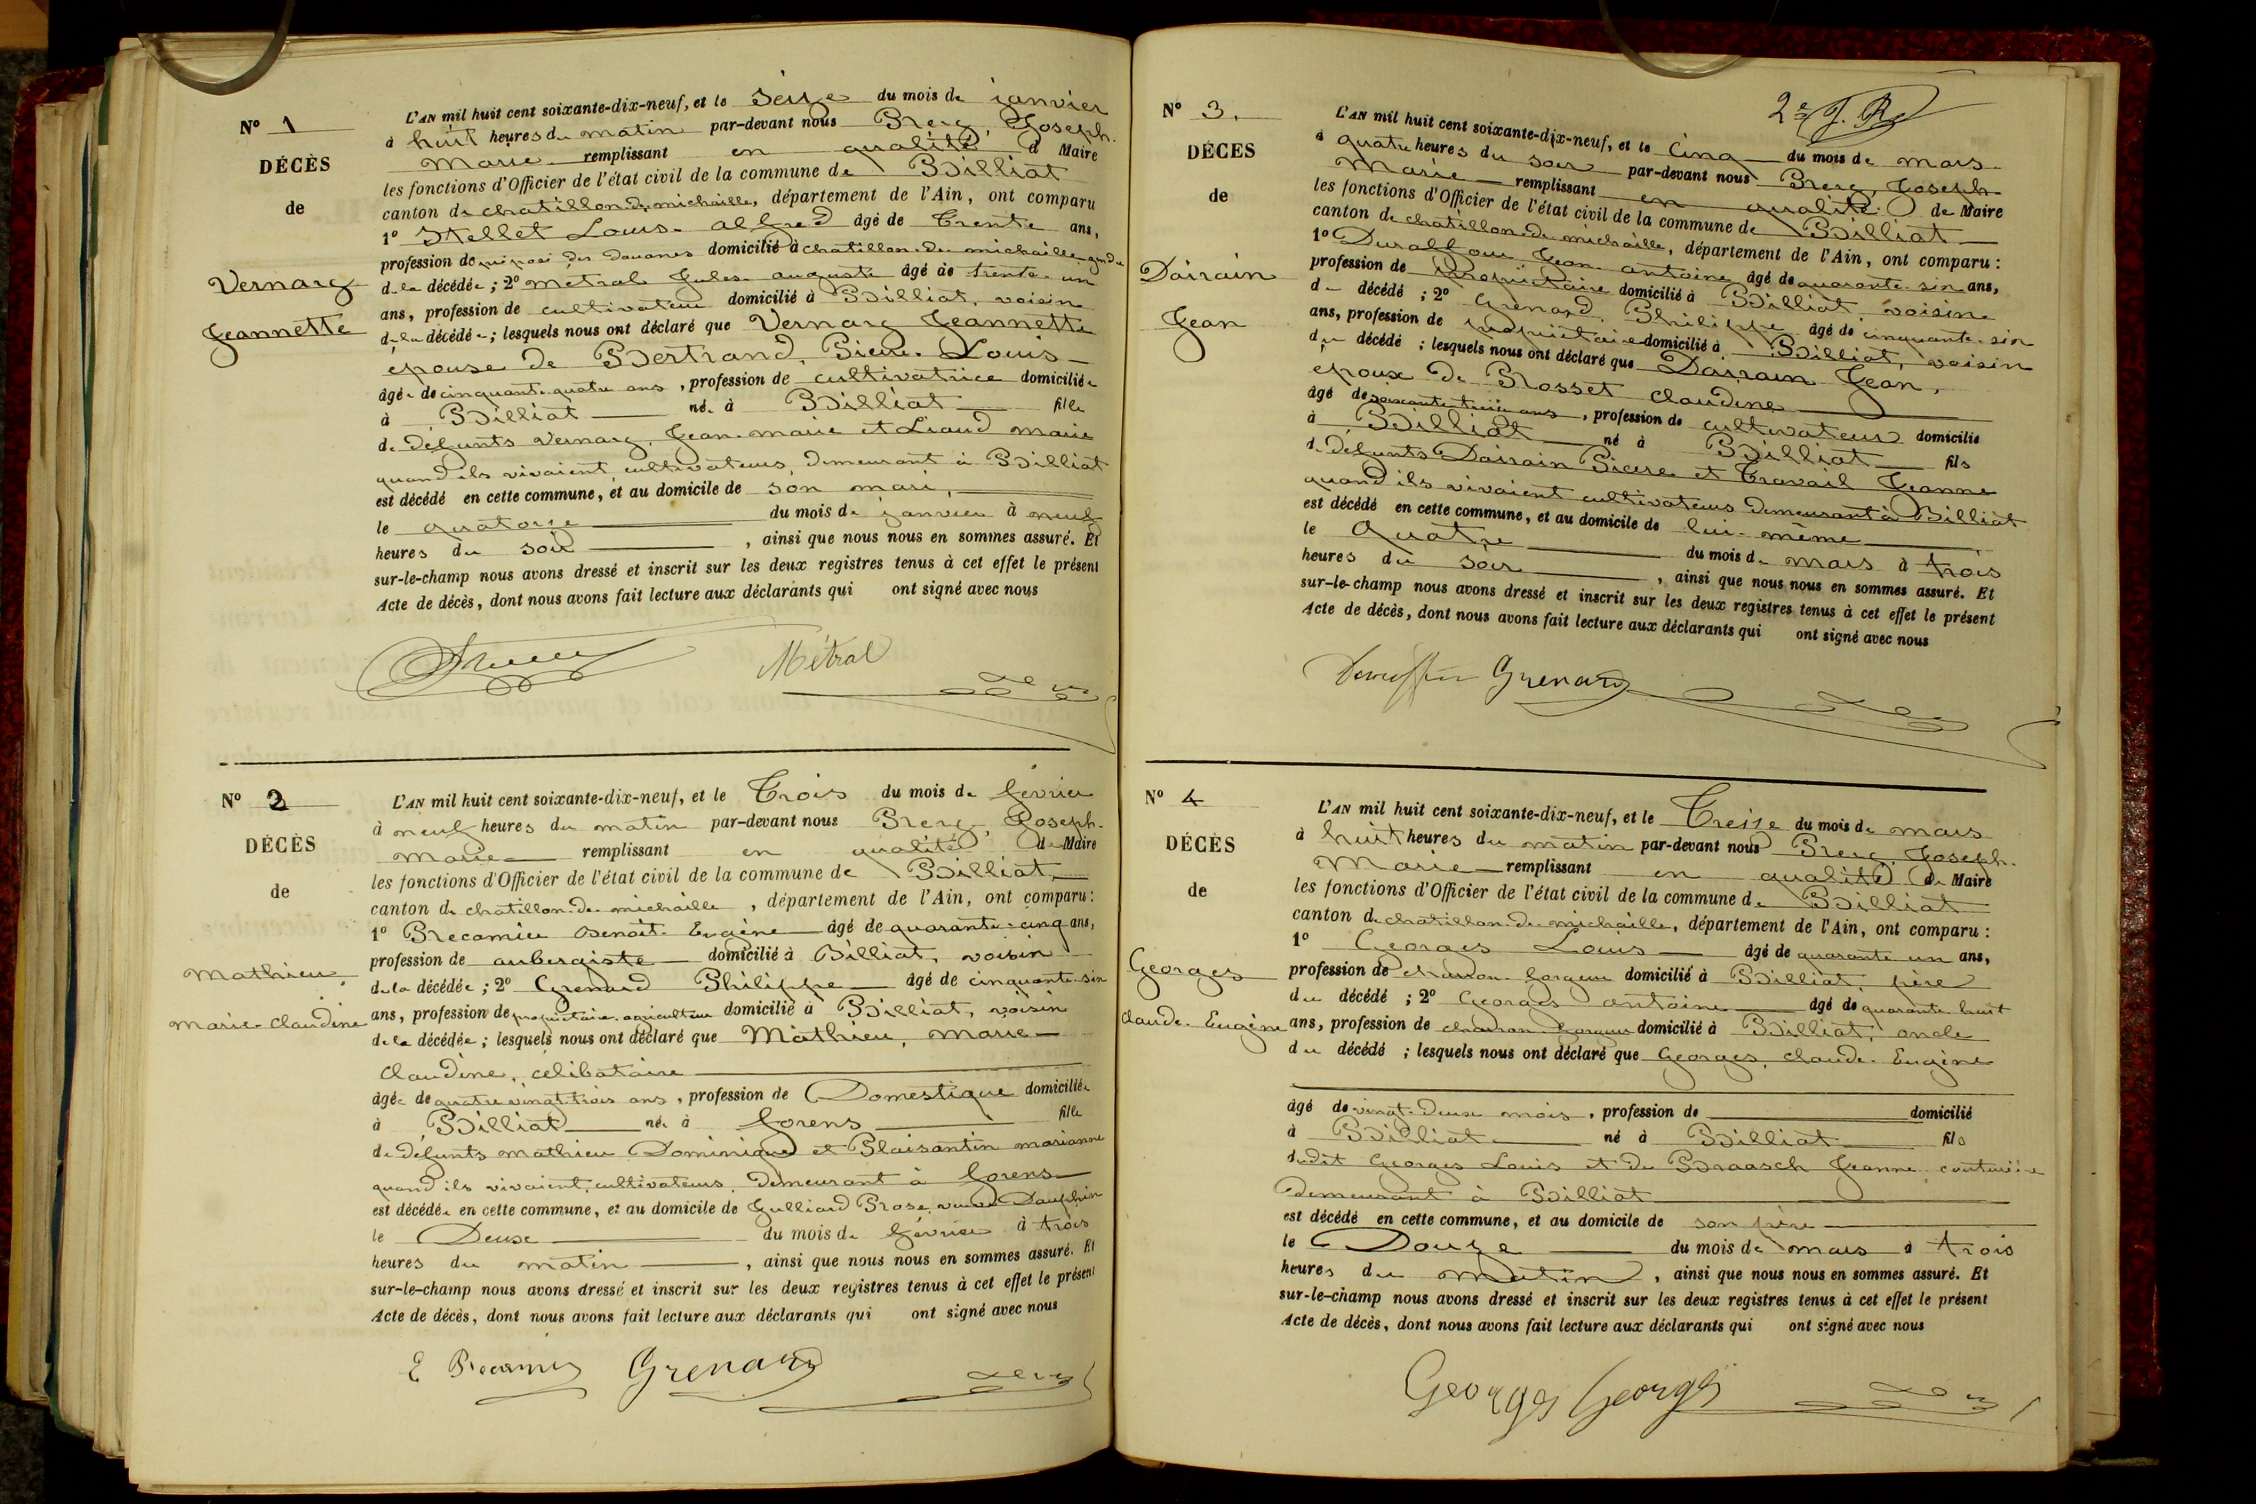 N° 1
DÉCÈS
de
Vernarg
Jeannette
L'AN mil huit cent soixante-dix-neuf, et le seize du mois de janvier
à huit heures du matin par-devant nous Joseph-
Marie remplissant en qualité d Maire
les fonctions d'Officier de l'état civil de la commune de Billiat
canton de chatillon-de-michaille, département de l'Ain, ont comparu
1° Louis-alfred âgé de Trente ans,
profession de préposé des Douanes domicilié à chatillon-de-michaille
de la décédée ; 2° métral Jules-auguste âgé de trente-un
ans, profession de cultivateur domicilié à Billiat, voisin
de la décédée ; lesquels nous ont déclaré que Vernarg Jeannette
épouse de Bertrand, Pierre-Louis
âgée de cinquante-quatre ans, profession de cultivatrice domiciliée
à Billiat née à Billiat fille
de défunts Vernarg, Jean-marie et Liaud marie
quand ils vivaient cultivateurs, demeurant à Billiat
est décédé en cette commune, et au domicile de son mari,
le quatorze du mois de janvier à neuf
heures du soir, ainsi que nous nous en sommes assuré. Et
sur-le-champ nous avons dressé et inscrit sur les deux registres tenus à cet effet le présent
Acte de décès, dont nous avons fait lecture aux déclarants qui ont signé avec nous
Métral
N° 2
DÉCÈS
de
Mathieu
Marie-Claudine
L'AN mil huit cent soixante-dix-neuf, et le Trois du mois de février
à neuf heures du matin par-devant nous Joseph-
Marie remplissant en qualité de Maire
les fonctions d'Officier de l'état civil de la commune de Billiat,
canton de chatillon-de-michaille, département de l'Ain, ont comparu :
1° Benoit-Eugène âgé de quarante-cinq ans,
profession de aubergiste domicilié à Billiat, voisin
de la décédée ; 2° Grenard Philippe âgé de cinquante-six
ans, profession de propriétaire-agriculteur domicilié à Billiat, voisin
de la décédée ; lesquels nous ont déclaré que Mathieu, marie-
claudine, célibataire
âgée de quatre-vingt-trois ans, profession de Domestique domiciliée
à Billiat née à forens fille
de défunts mathieu Dominique et Plaisantin marianne
quand ils vivaient, cultivateurs, demeurant à forens
est décédée en cette commune, et au domicile de Julliard Rose, veuve Dauphin
le Deux du mois de février à trois
heures du matin, ainsi que nous nous en sommes assuré. Et
sur-le-champ nous avons dressé et inscrit sur les deux registres tenus à cet effet le présent
Acte de décès, dont nous avons fait lecture aux déclarants qui ont signé avec nous
Grenard
2e
N° 3.
DÉCÈS
de
Dairain
Jean
L'AN mil huit cent soixante-dix-neuf, et le cinq du mois de mars
à quatre heures du soir par-devant nous Joseph-
Marie remplissant en qualité de Maire
les fonctions d'Officier de l'état civil de la commune de Billiat
canton de chatillon-de-michaille, département de l'Ain, ont comparu :
1° Duraffour Jean-antoine âgé de quarante-six ans,
profession de Propriétaire domicilié à Billiat, voisin
du décédé ; 2° Grenard, Philippe âgé de cinquante-six
ans, profession de propriétaire domicilié à Billiat, voisin
du décédé ; lesquels nous ont déclaré que Dairain Jean,
époux de Rosset claudine
âgé de soixante-treize ans, profession de cultivateur domicilié
à Billiat né à Billiat fils
de défunts Dairain Pierre et Travail Jeanne
quand ils vivaient cultivateurs demeurant à Billiat
est décédé en cette commune, et au domicile de lui-même
le quatre du mois de mars à trois
heures du soir, ainsi que nous nous en sommes assuré. Et
sur-le-champ nous avons dressé et inscrit sur les deux registres tenus à cet effet le présent
Acte de décès, dont nous avons fait lecture aux déclarants qui ont signé avec nous
Grenard
N° 4
DÉCÈS
de
Georges
Claude-Eugène
L'AN mil huit cent soixante-dix-neuf, et le Treize du mois de mars
à huit heures du matin par-devant nous Joseph-
Marie remplissant en qualité de Maire
les fonctions d'Officier de l'état civil de la commune de Billiat
canton de chatillon-de-michaille, département de l'Ain, ont comparu :
1° Georges Louis âgé de quarante-un ans,
profession de charron-forgeur domicilié à Billiat, père
du décédé ; 2° Georges antoine âgé de quarante-huit
ans, profession de charron forgeur domicilié à Billiat, oncle
du décédé ; lesquels nous ont déclaré que Georges, claude-Eugène
âgé de vingt-deux mois, profession de domicilié
à Billiat né à Billiat fils
dudit Georges Louis et de Braasch Jeanne, couturière
demeurant à Billiat
est décédé en cette commune, et au domicile de son père
le Douze du mois de mars à trois
heures du matin, ainsi que nous nous en sommes assuré. Et
sur-le-champ nous avons dressé et inscrit sur les deux registres tenus à cet effet le présent
Acte de décès, dont nous avons fait lecture aux déclarants qui ont signé avec nous
Georges Georges